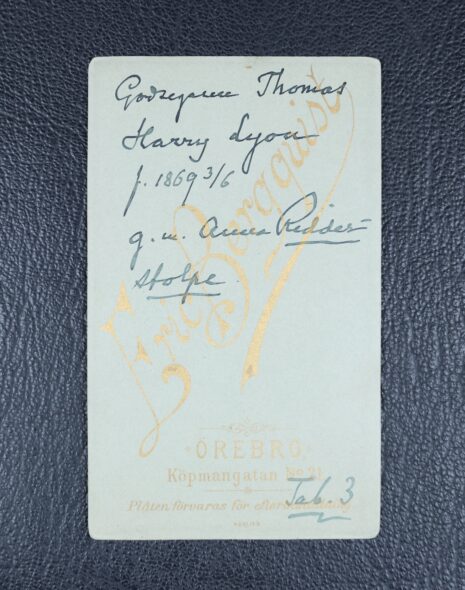 Godsegaren Thomas
Harry Lyon
f. 1869 3/6
g. m. Anna Ridder-
stolpe.
Eric Bergquist
ÖREBRO,
Köpmangatan No 21
Tab. 3
Plåten förvaras för efterbeställning